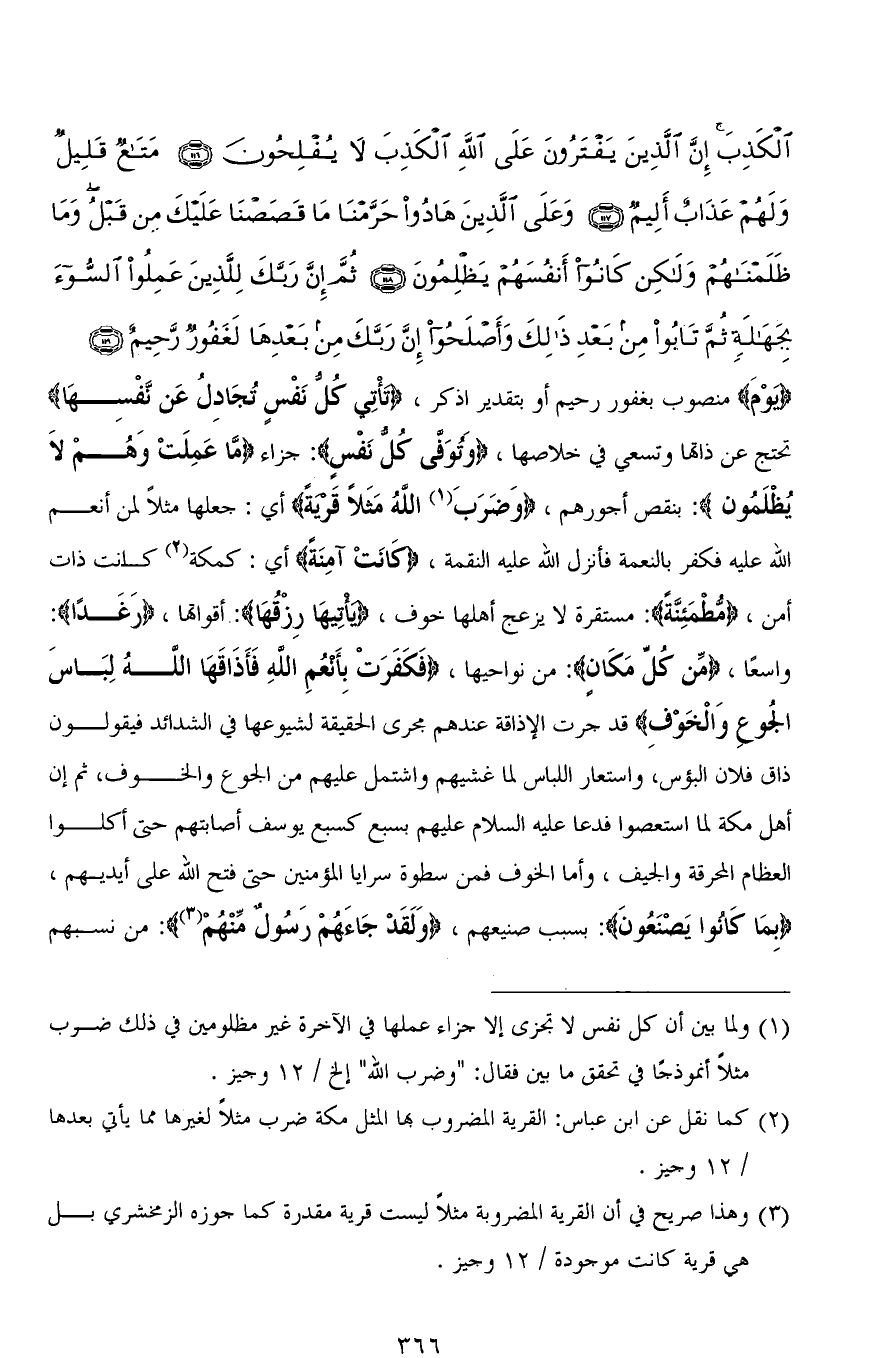 ٱلْكَذِبَ ۚ إِنَّ ٱلَّذِينَ يَفْتَرُونَ عَلَى ٱللَّهِ ٱلْكَذِبَ لَا يُفْلِحُونَ ﴿١١٦﴾ مَتَـٰعٌ قَلِيلٌ
وَلَهُمْ عَذَابٌ أَلِيمٌ ﴿١١٧﴾ وَعَلَى ٱلَّذِينَ هَادُوا۟ حَرَّمْنَا مَا قَصَصْنَا عَلَيْكَ مِن قَبْلُ ۖ وَمَا
ظَلَمْنَـٰهُمْ وَلَـٰكِن كَانُوٓا۟ أَنفُسَهُمْ يَظْلِمُونَ ﴿١١٨﴾ ثُمَّ إِنَّ رَبَّكَ لِلَّذِينَ عَمِلُوا۟ ٱلسُّوٓءَ
بِجَهَـٰلَةٍ ثُمَّ تَابُوا۟ مِنۢ بَعْدِ ذَٰلِكَ وَأَصْلَحُوٓا۟ إِنَّ رَبَّكَ مِنۢ بَعْدِهَا لَغَفُورٌ رَّحِيمٌ ﴿١١٩﴾
﴿يَوْمَ﴾ منصوب بغفور رحيم أو بتقدير اذكر ، ﴿تَأْتِي كُلُّ نَفْسٍ تُجَادِلُ عَن نَّفْسِهَا﴾
تحتج عن ذاتها وتسعي في خلاصها ، ﴿وَتُوَفَّى كُلُّ نَفْسٍ﴾: جزاء ﴿مَّا عَمِلَتْ وَهُمْ لاَ
يُظْلَمُون﴾: بنقص أجورهم ، ﴿وَضَرَبَ(١) اللَّهُ مَثَلاً قَرْيَةً﴾ أي : جعلها مثلاً لمن أنعم
الله عليه فكفر بالنعمة فأنزل الله عليه النقمة ، ﴿كَانَتْ آمِنَةً﴾ أي : كمكة(٢) كانت ذات
أمن ، ﴿مُّطْمَئِنَّةً﴾: مستقرة لا يزعج أهلها خوف ، ﴿يَأْتِيهَا رِزْقُهَا﴾: أقواتها ، ﴿رَغَدًا﴾:
واسعًا ، ﴿مِّن كُلِّ مَكَانٍ﴾: من نواحيها ، ﴿فَكَفَرَتْ بِأَنْعُمِ اللَّهِ فَأَذَاقَهَا اللَّهُ لِبَاسَ
الجُوعِ وَالْخَوْفِ﴾ قد جرت الإذاقة عندهم مجرى الحقيقة لشيوعها في الشدائد فيقولون
ذاق فلان البؤس، واستعار اللباس لما غشيهم واشتمل عليهم من الجوع والخوف، ثم إن
أهل مكة لما استعصوا فدعا عليه السلام عليهم بسبع كسبع يوسف أصابتهم حتى أكلوا
العظام المحرقة والجيف ، وأما الخوف فمن سطوة سرايا المؤمنين حتى فتح الله على أيديهم ،
﴿بِمَا كَانُوا يَصْنَعُونَ﴾: بسبب صنيعهم ، ﴿وَلَقَدْ جَاءَهُمْ رَسُولٌ مِّنْهُمْ(٣)﴾: من نسبهم
(١) ولما بين أن كل نفس لا تجزى إلا جزاء عملها في الآخرة غير مظلومين في ذلك ضرب
مثلاً أنموذجًا في تحقق ما بين فقال: "وضرب الله" إلخ / ١٢ وجيز .
(٢) كما نقل عن ابن عباس: القرية المضروب بها المثل مكة ضرب مثلاً لغيرها مما يأتي بعدها
/ ١٢ وجيز .
(٣) وهذا صريح في أن القرية المضروبة مثلاً ليست قرية مقدرة كما جوزه الزمخشري بل
هي قرية كانت موجودة / ١٢ وجيز .
٣٦٦